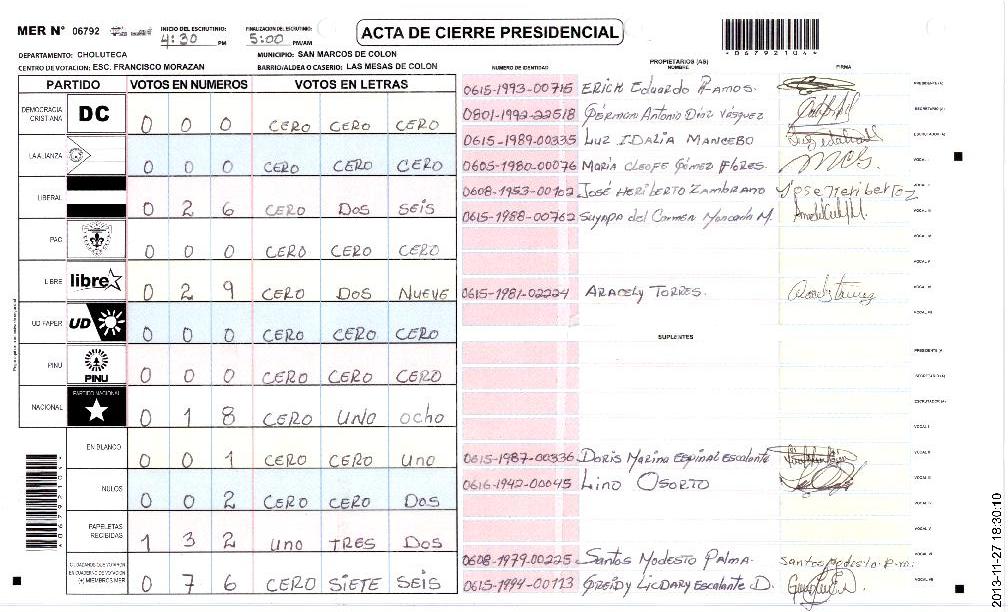 MER N° 06792 INICIO DEL ESCRUTINIO: 4:30 PM FINALIZACION DE ESCRUTINIO: 5:00 PM/AM ACTA DE CIERRE PRESIDENCIAL
DEPARTAMENTO: CHOLUTECA MUNICIPIO: SAN MARCOS DE COLON
CENTRO DE VOTACION: ESC. FRANCISCO MORAZAN BARRIO/ALDEA O CASERIO: LAS MESAS DE COLON
NUMERO DE IDENTIDAD PROPIETARIOS (AS) NOMBRE FIRMA
PARTIDO VOTOS EN NUMEROS VOTOS EN LETRAS
DEMOCRACIA CRISTIANA DC 0 0 0 CERO CERO CERO
LA ALIANZA 0 0 0 CERO CERO CERO
LIBERAL 0 2 6 CERO DOS SEIS
PAC 0 0 0 CERO CERO CERO
LIBRE libre 0 2 9 CERO DOS NUEVE
UD FAPER UD 0 0 0 CERO CERO CERO
PINU PINU 0 0 0 CERO CERO CERO
NACIONAL PARTIDO NACIONAL 0 1 8 CERO UNO ocho
EN BLANCO 0 0 1 CERO CERO uno
NULOS 0 0 2 CERO CERO Dos
PAPELETAS RECIBIDAS 1 3 2 uno TRES Dos
CIUDADANOS QUE VOTARON EN CUADERNO DE VOTACION (+) MIEMBROS MER 0 7 6 CERO SIETE SEIS
0615-1993-00715 ERICH Eduardo Ramos. PRESIDENTE (A)
0801-1992-22518 Germann Antonio Díaz Vásquez SECRETARIO (A)
0615-1989-00335 Luz IDALIA MANCEBO ESCRUTADOR (A)
0605-1980-00076 Maria CLEOFE Gómez Flores. VOCAL I
0608-1953-00102 José HERIBERTO ZAMBRANO Jose Heriberto Z VOCAL II
0615-1988-00762 Suyapa del Carmen Moncada M. VOCAL III
VOCAL IV
VOCAL V
0615-1981-02224 ARACELY TORRES. VOCAL VI
VOCAL VII
SUPLENTES
PRESIDENTE (A)
SECRETARIO (A)
ESCRUTADOR (A)
VOCAL I
0615-1987-00336 Doris Marina Espinal Escalante VOCAL II
0616-1942-00045 Lino OSORTO VOCAL III
VOCAL IV
VOCAL V
0608-1979-00225 Santos Modesto Palma. VOCAL VI
0615-1994-00113 GREIDY LicDARY Escalante D. VOCAL VII
2013-11-27 18:30:10